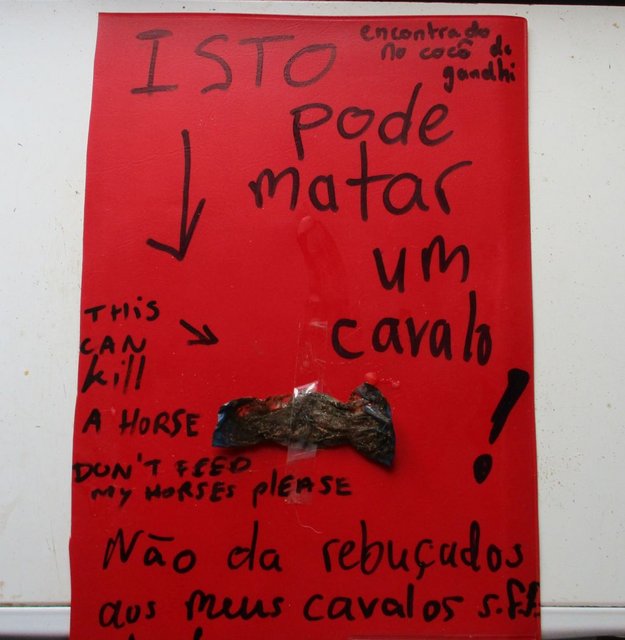 ISTO
encontrado
no cocô do
gandhi
pode
matar
um
cavalo
!
THiS
CAN
kill
A HORSE
DON'T FEED
MY HORSES pLEASE
Não da rebuçados
aos meus cavalos s.f.f.